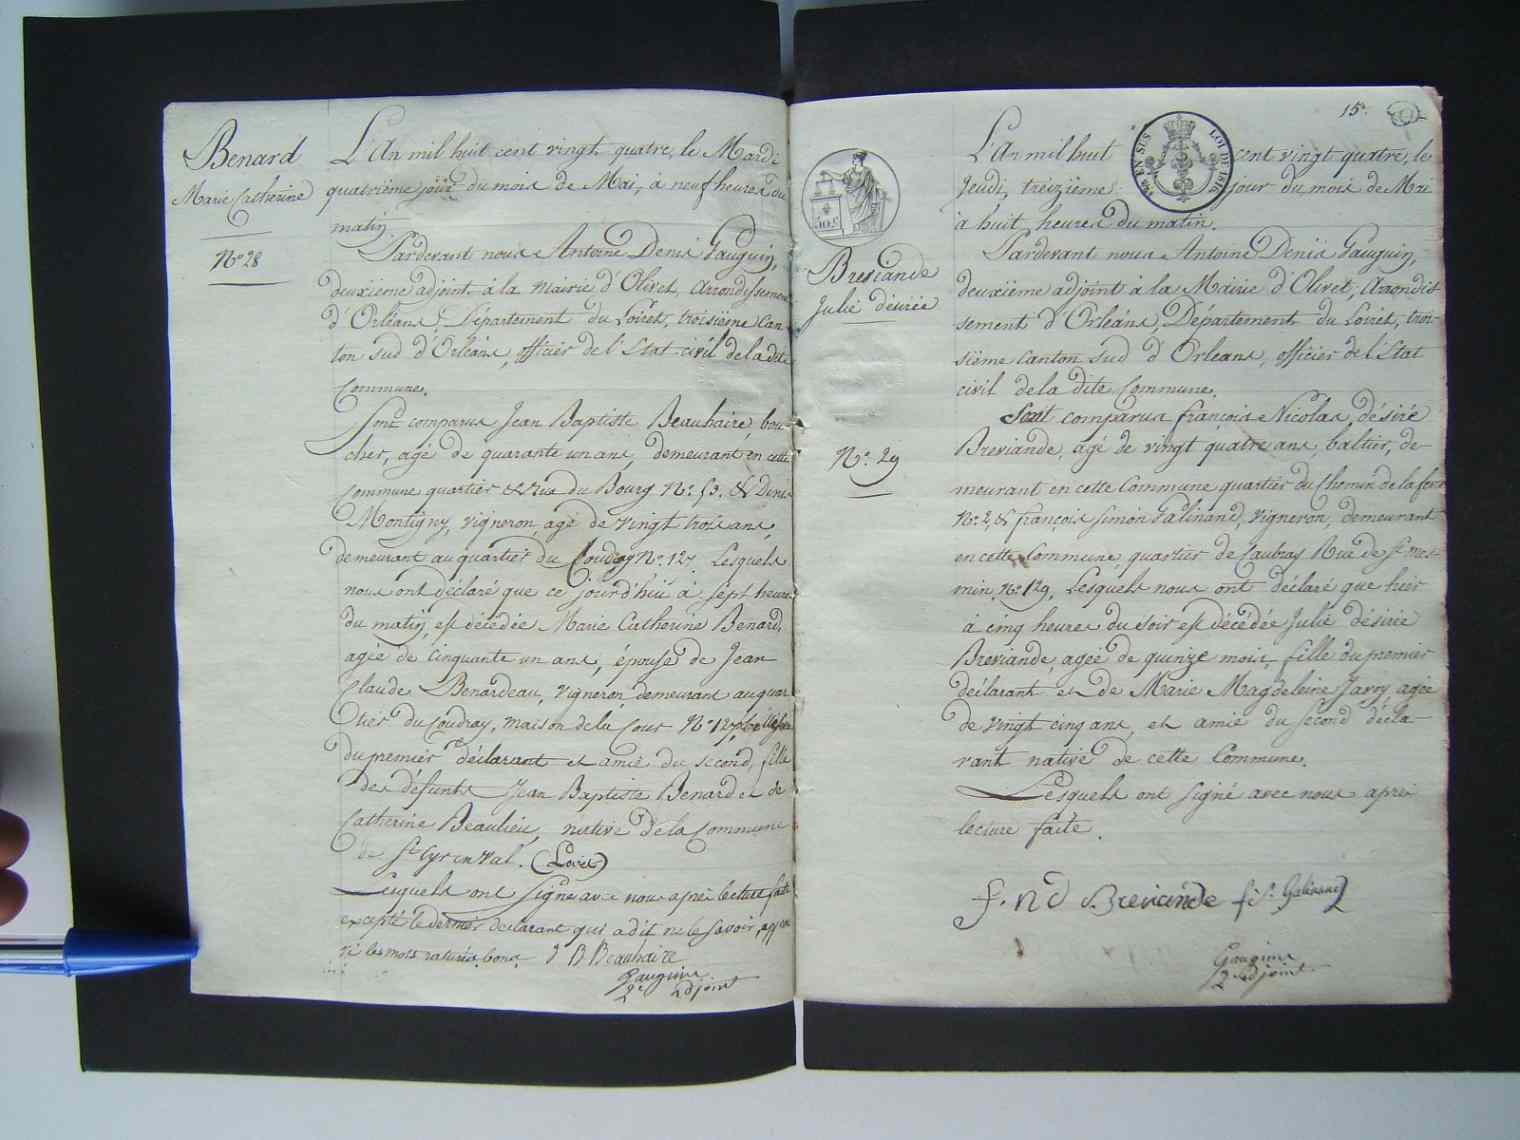 Benard
Marie Catherine
N° 28
L'An mil huit cent vingt quatre, le Mardi
quatrième jour du mois de Mai, à neuf heures du
matin.
Pardevant nous Antoine Denis Gauguin,
deuxieme adjoint à la mairie d'Olivet, arrondissement
d'Orléans, Département du Loiret, troisième Can
ton sud d'Orléans, officier de l'Etat civil de la dite
Commune.
Sont comparus Jean Baptiste Beauhaire bou
cher, agé de quarante un ans, demeurant en cette
Commune quartier & Rue du Bourg N° 53. & Denis
Montigny, vigneron, agé de vingt trois ans,
demeurant au quartier du Coudray N° 127. Lesquels
nous ont déclaré que ce jourd'hui à sept heures
du matin, est décédée Marie Catherine Benard,
agée de cinquante un ans, épouse de Jean
Claude Benardeau, vigneron demeurant au quar
tier du Coudray, maison de la Cour N° 127,
du premier déclarant et amie du second, fille
des défunts Jean Baptiste Benard et de
Catherine Beaulieu, native de la Commune
de St Cyr en Val. (Loiret)
Lesquels ont signé avec nous après lecture faite
excepté le dernier declarant qui a dit ne le savoir, approu
vé les mots raturés bons J B Beauhaire
Gauguin
2e adjoint
15e.
LOI DE 1816
EN SUS
50 c
Breviande
Julie désirée
N° 29
L'An mil huit cent vingt quatre, le
Jeudi, treizième jour du mois de Mai
à huit heures du matin.
Pardevant nous Antoine Denis Gauguin,
deuxième adjoint à la Mairie d'Olivet, Arrondis
sement d'Orléans, Département du Loiret, troi-
sième Canton sud d'Orleans, officier de l'Etat
civil de la dite Commune.
Sont comparus françois Nicolas désiré
Breviande, agé de vingt quatre ans, baltier, de-
meurant en cette Commune quartier du Chemin de la
N° 2, & françois simon Galinand, vigneron, demeurant
en cette Commune, quartier de Caubray Rue de St Mes-
min, N° 129, Lesquels nous ont déclaré que hier
à cinq heures du soir est décédée Julie désirée
Breviande, agée de quinze mois, fille du premier
déclarant et de Marie Magdeleine Javoy, agée
de vingt cinq ans, et amie du second décla-
rant native de cette Commune.
Lesquels ont signé avec nous après
lecture faite.
f. N D Breviande f S. Galinand
Gauguin
2e adjoint